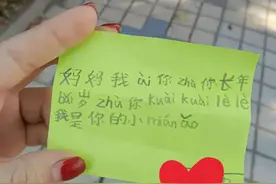 妈妈我ài你zhù你长年
百岁zhù你kuài kuài lè lè
我是你的小miánǎo